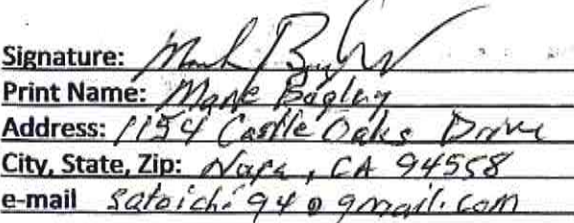 Signature: Mark Bagley
Print Name: Mark Bagley
Address: 1154 Castle Oaks Drive
City, State, Zip: Napa, CA 94558
e-mail satoichi94@gmail.com